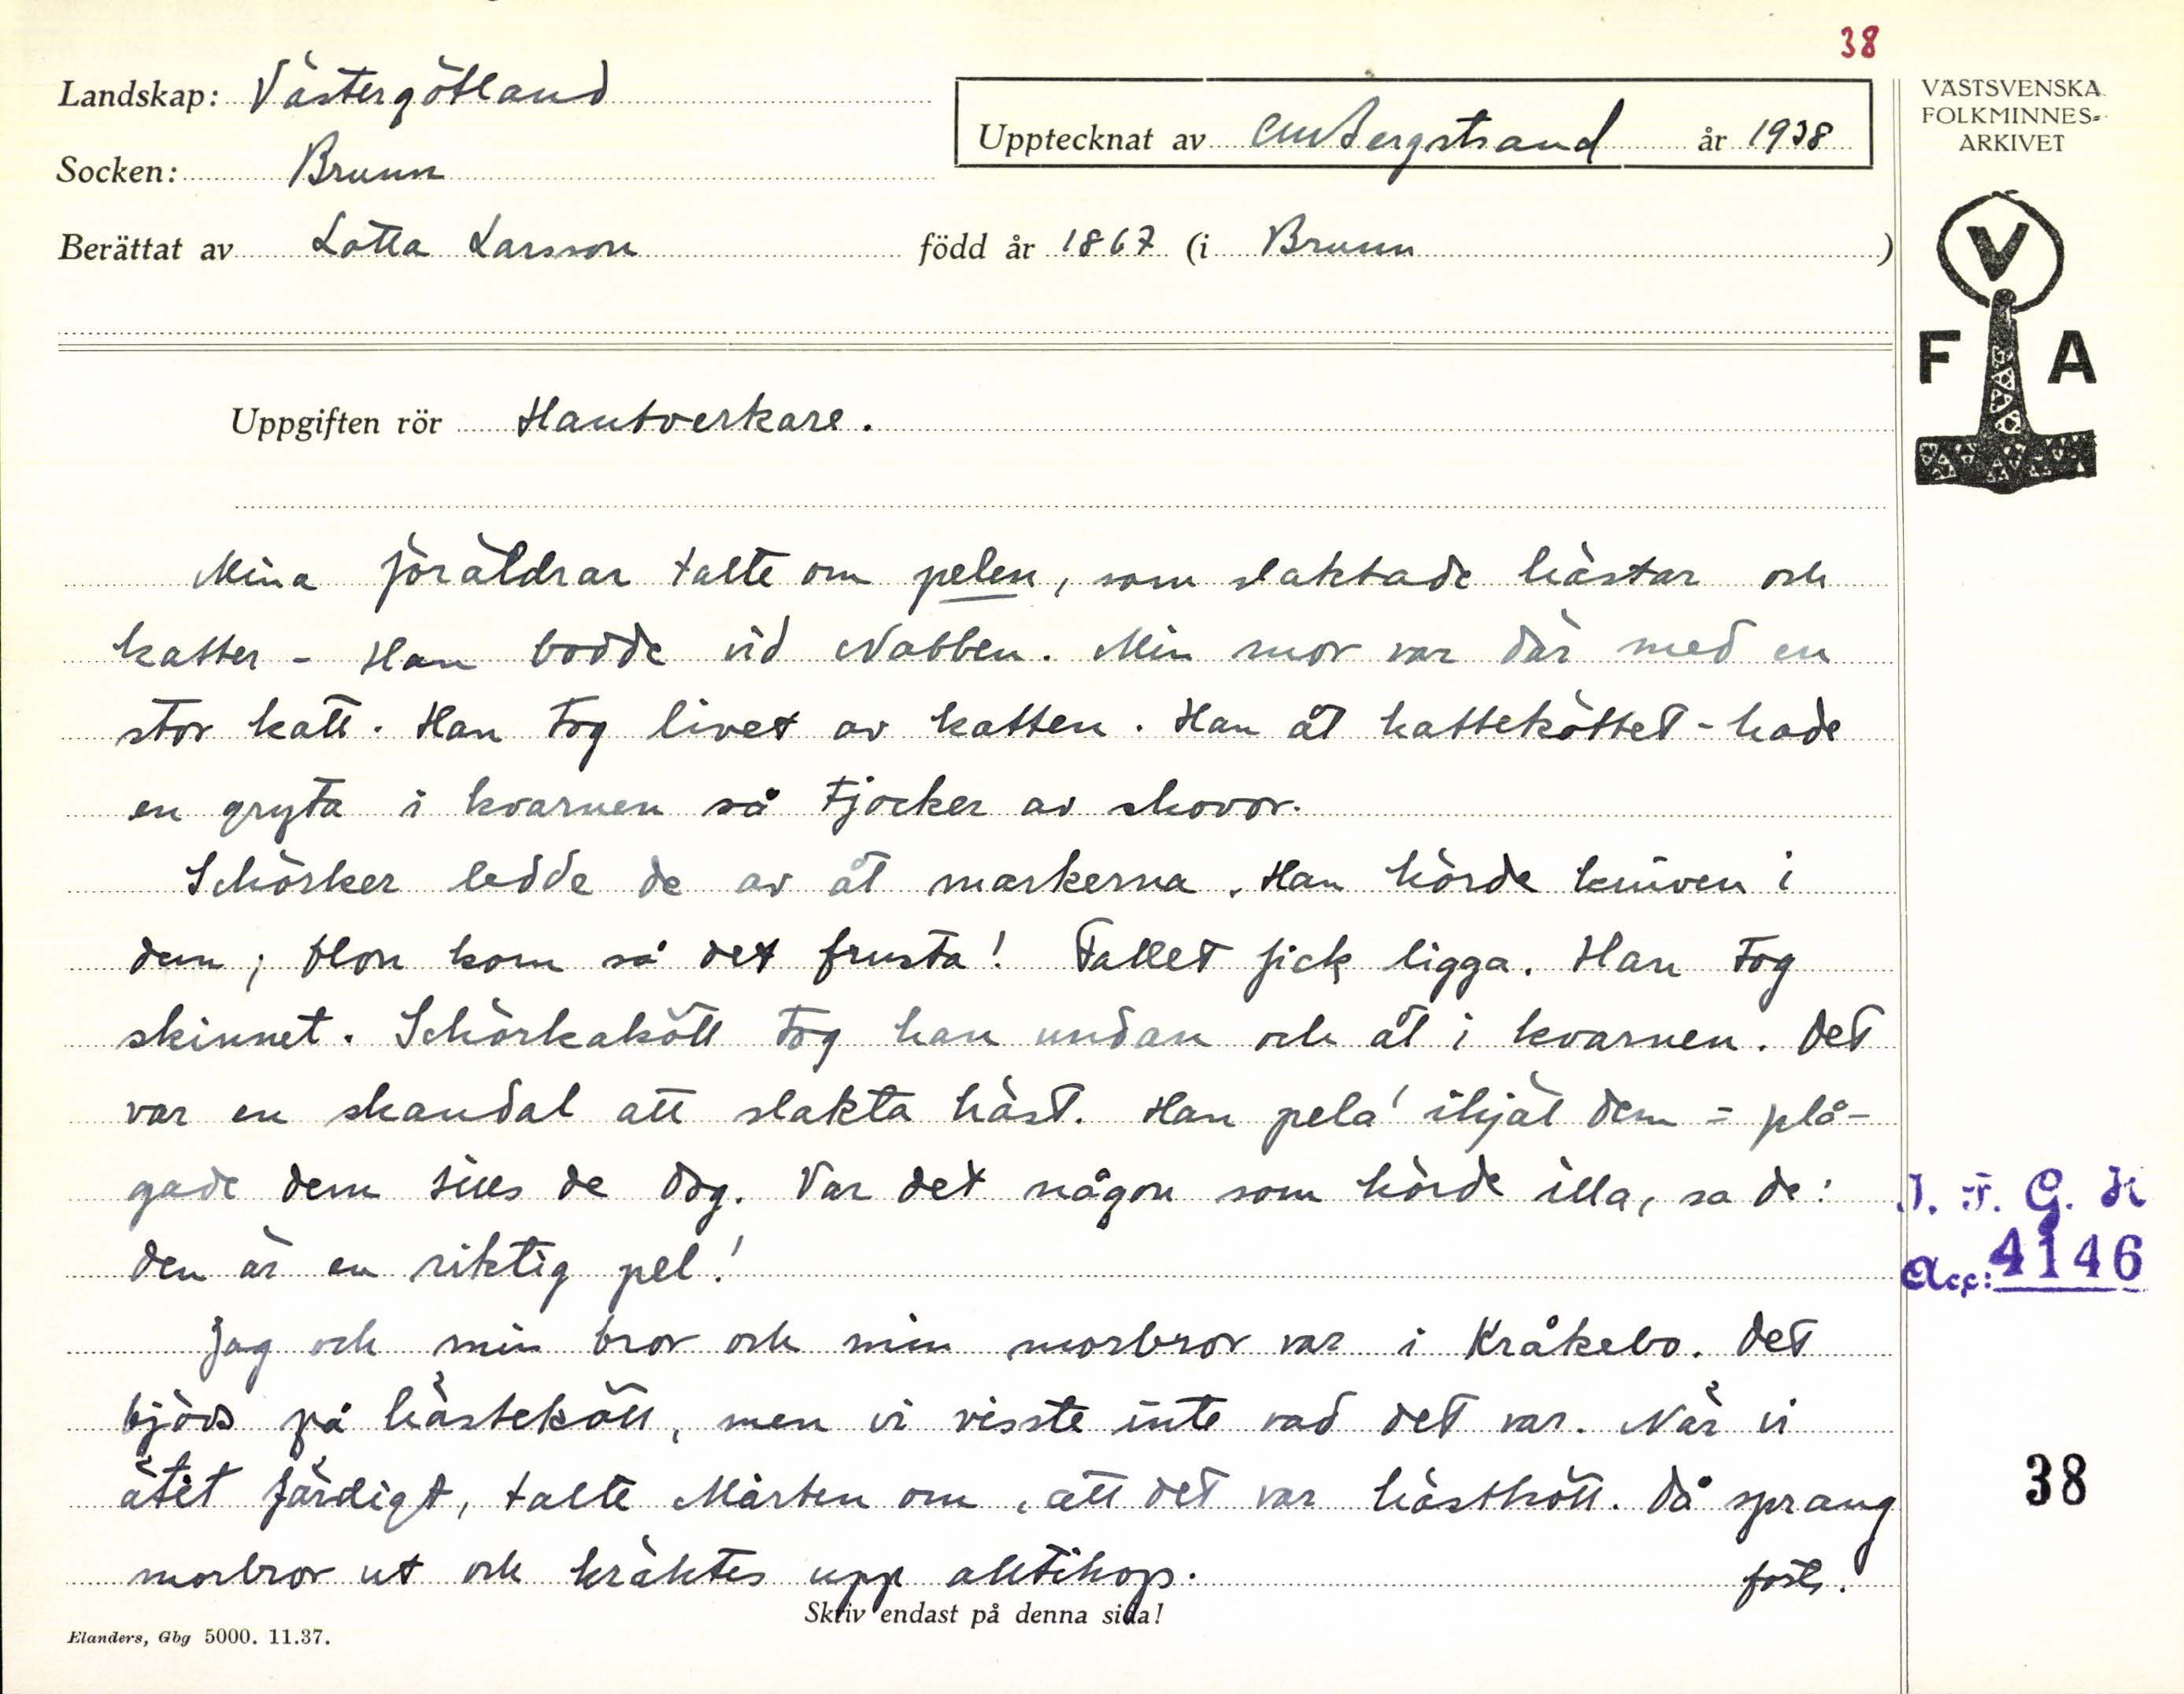 38
Landskap: Västergötland
Upptecknat av CM Bergstrand år 1938
VÄSTSVENSKA
FOLKMINNES-
ARKIVET
Socken: Brunn
Berättat av Lotta Larsson född år 1867 (i Brunn )
V
F A
Uppgiften rör Hantverkare.
Mina föräldrar talte om pelen, som slaktade hästar och
katter - Han bodde vid Nabben. Min mor var där med en
stor katt. Han tog livet av katten. Han åt katteköttet - hade
en gryta i kvarnen så tjocker av skovor.
Schörker ledde de av åt markerna. Han körde kniven i
dem; blon kom så det frusta! Fallet fick ligga. Han tog
skinnet. Schörkakött tog han undan och åt i kvarnen. Det
var en skandal att slakta häst. Han pela' ihjäl dem = plå-
gade dem tills de dog. Var det någon som körde illa, sa de:
den är en riktig pel!
I. F. G. H
Acc: 4146
Jag och min bror och min morbror var i Kråkebo. Det
bjöds på hästekött, men vi visste inte vad det var. När vi
ätit färdigt, talte Mårten om, att det var hästkött. Då sprang
38
morbror ut och kräktes upp alltihop. forts.
Skriv endast på denna sida!
Elanders, Gbg 5000. 11.37.